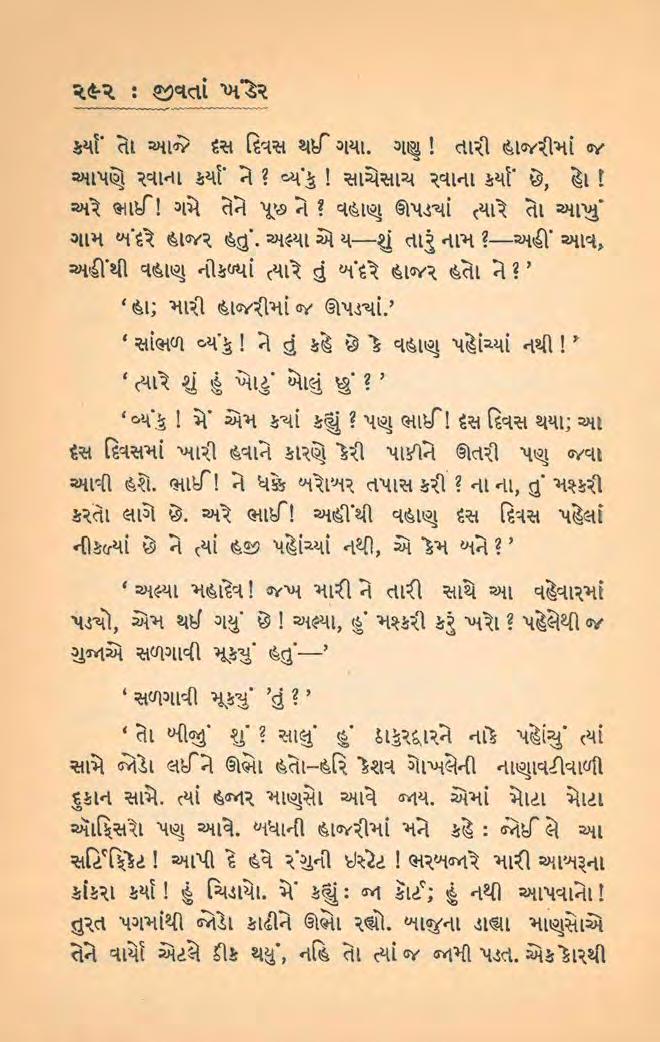 ૨૯૨ : જીવતાં ખંડેર
કર્યાં તો આજે દસ દિવસ થઈ ગયા. ગણુ ! તારી હાજરીમાં જ
આપણે રવાના કર્યાં ને ? વ્યંકુ ! સાચેસાચ રવાના કર્યાં છે, હો !
અરે ભાઈ ! ગમે તેને પૂછ ને ? વહાણ ઊપડ્યાં ત્યારે તો આખું
ગામ બંદરે હાજર હતું. અલ્યા એ ય—શું તારું નામ ?—અહીં આવ,
અહીંથી વહાણ નીકળ્યાં ત્યારે તું બંદરે હાજર હતો ને ?’
‘હા; મારી હાજરીમાં જ ઊપડ્યાં.’
‘સાંભળ વ્યંકુ ! ને તું કહે છે કે વહાણ પહોંચ્યાં નથી !’
‘ત્યારે શું હું ખોટું બોલું છું ?’
‘વ્યંકુ ! મેં એમ કયાં કહ્યું ? પણ ભાઈ ! દસ દિવસ થયા; આ
દસ દિવસમાં ખારી હવાને કારણે કેરી પાકીને ઊતરી પણ જવા
આવી હશે. ભાઈ ! ને ધક્કે બરોબર તપાસ કરી ? ના ના, તું મશ્કરી
કરતો લાગે છે. અરે ભાઈ ! અહીંથી વહાણ દસ દિવસ પહેલાં
નીકળ્યાં છે ને ત્યાં હજી પહોંચ્યાં નથી, એ કેમ બને ?’
‘અલ્યા મહાદેવ ! જખ મારી ને તારી સાથે આ વહેવારમાં
પડ્યો, એમ થઈ ગયું છે ! અલ્યા, હું મશ્કરી કરું ખરો ? પહેલેથી જ
ગુજાએ સળગાવી મૂકયું હતું—’
‘સળગાવી મૂકયું ’તું ?’
‘તો બીજું શું ? સાલું હું ઠાકુરદ્વારને નાકે પહોંચું ત્યાં
સામે જોડો લઈને ઊભો હતો–હરિ કેશવ ગોખલેની નાણાવટીવાળી
દુકાન સામે. ત્યાં હજાર માણસો આવે જાય. એમાં મોટા મોટા
ઑફિસરો પણ આવે. બધાની હાજરીમાં મને કહે : જોઈ લે આ
સર્ટિફિકેટ ! આપી દે હવે રંગુની ઇસ્ટેટ ! ભરબજારે મારી આબરૂના
કાંકરા કર્યા ! હું ચિડાયો. મેં કહ્યું : જા કૉર્ટ; હું નથી આપવાનો !
તુરત પગમાંથી જોડો કાઢીને ઊભો રહ્યો. બાજુના ડાહ્યા માણસોએ
તેને વાર્યો એટલે ઠીક થયું, નહિ તો ત્યાં જ જામી પડત. એક કોરથી